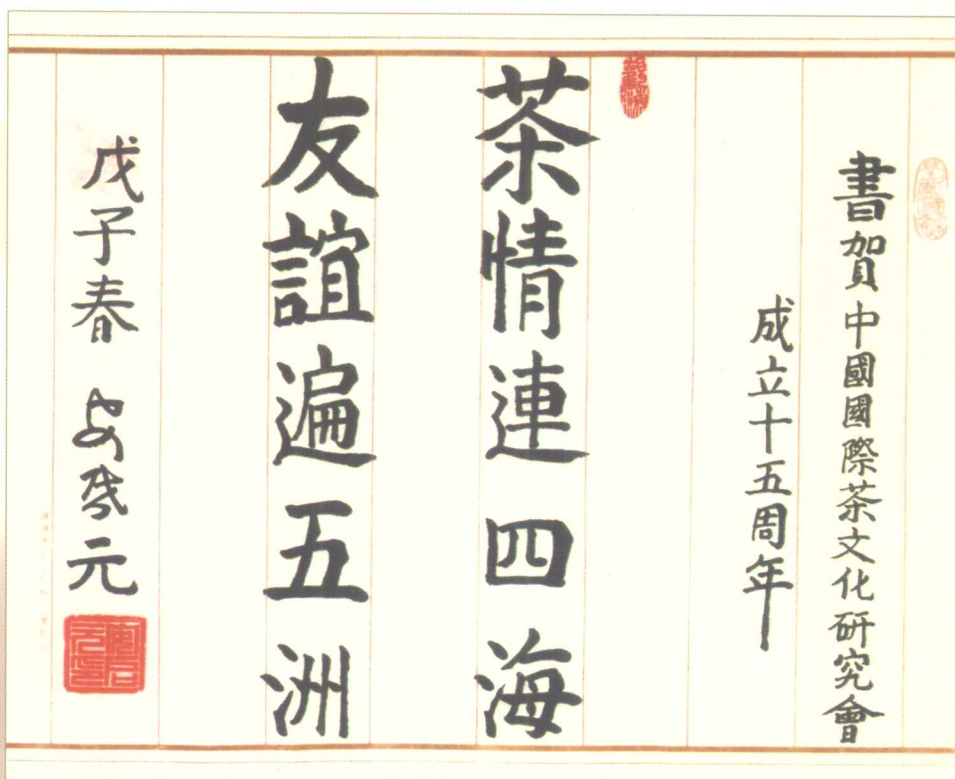 書賀中國國際茶文化研究會
成立十五周年
茶情連四海
友誼遍五洲
戊子春 安 元